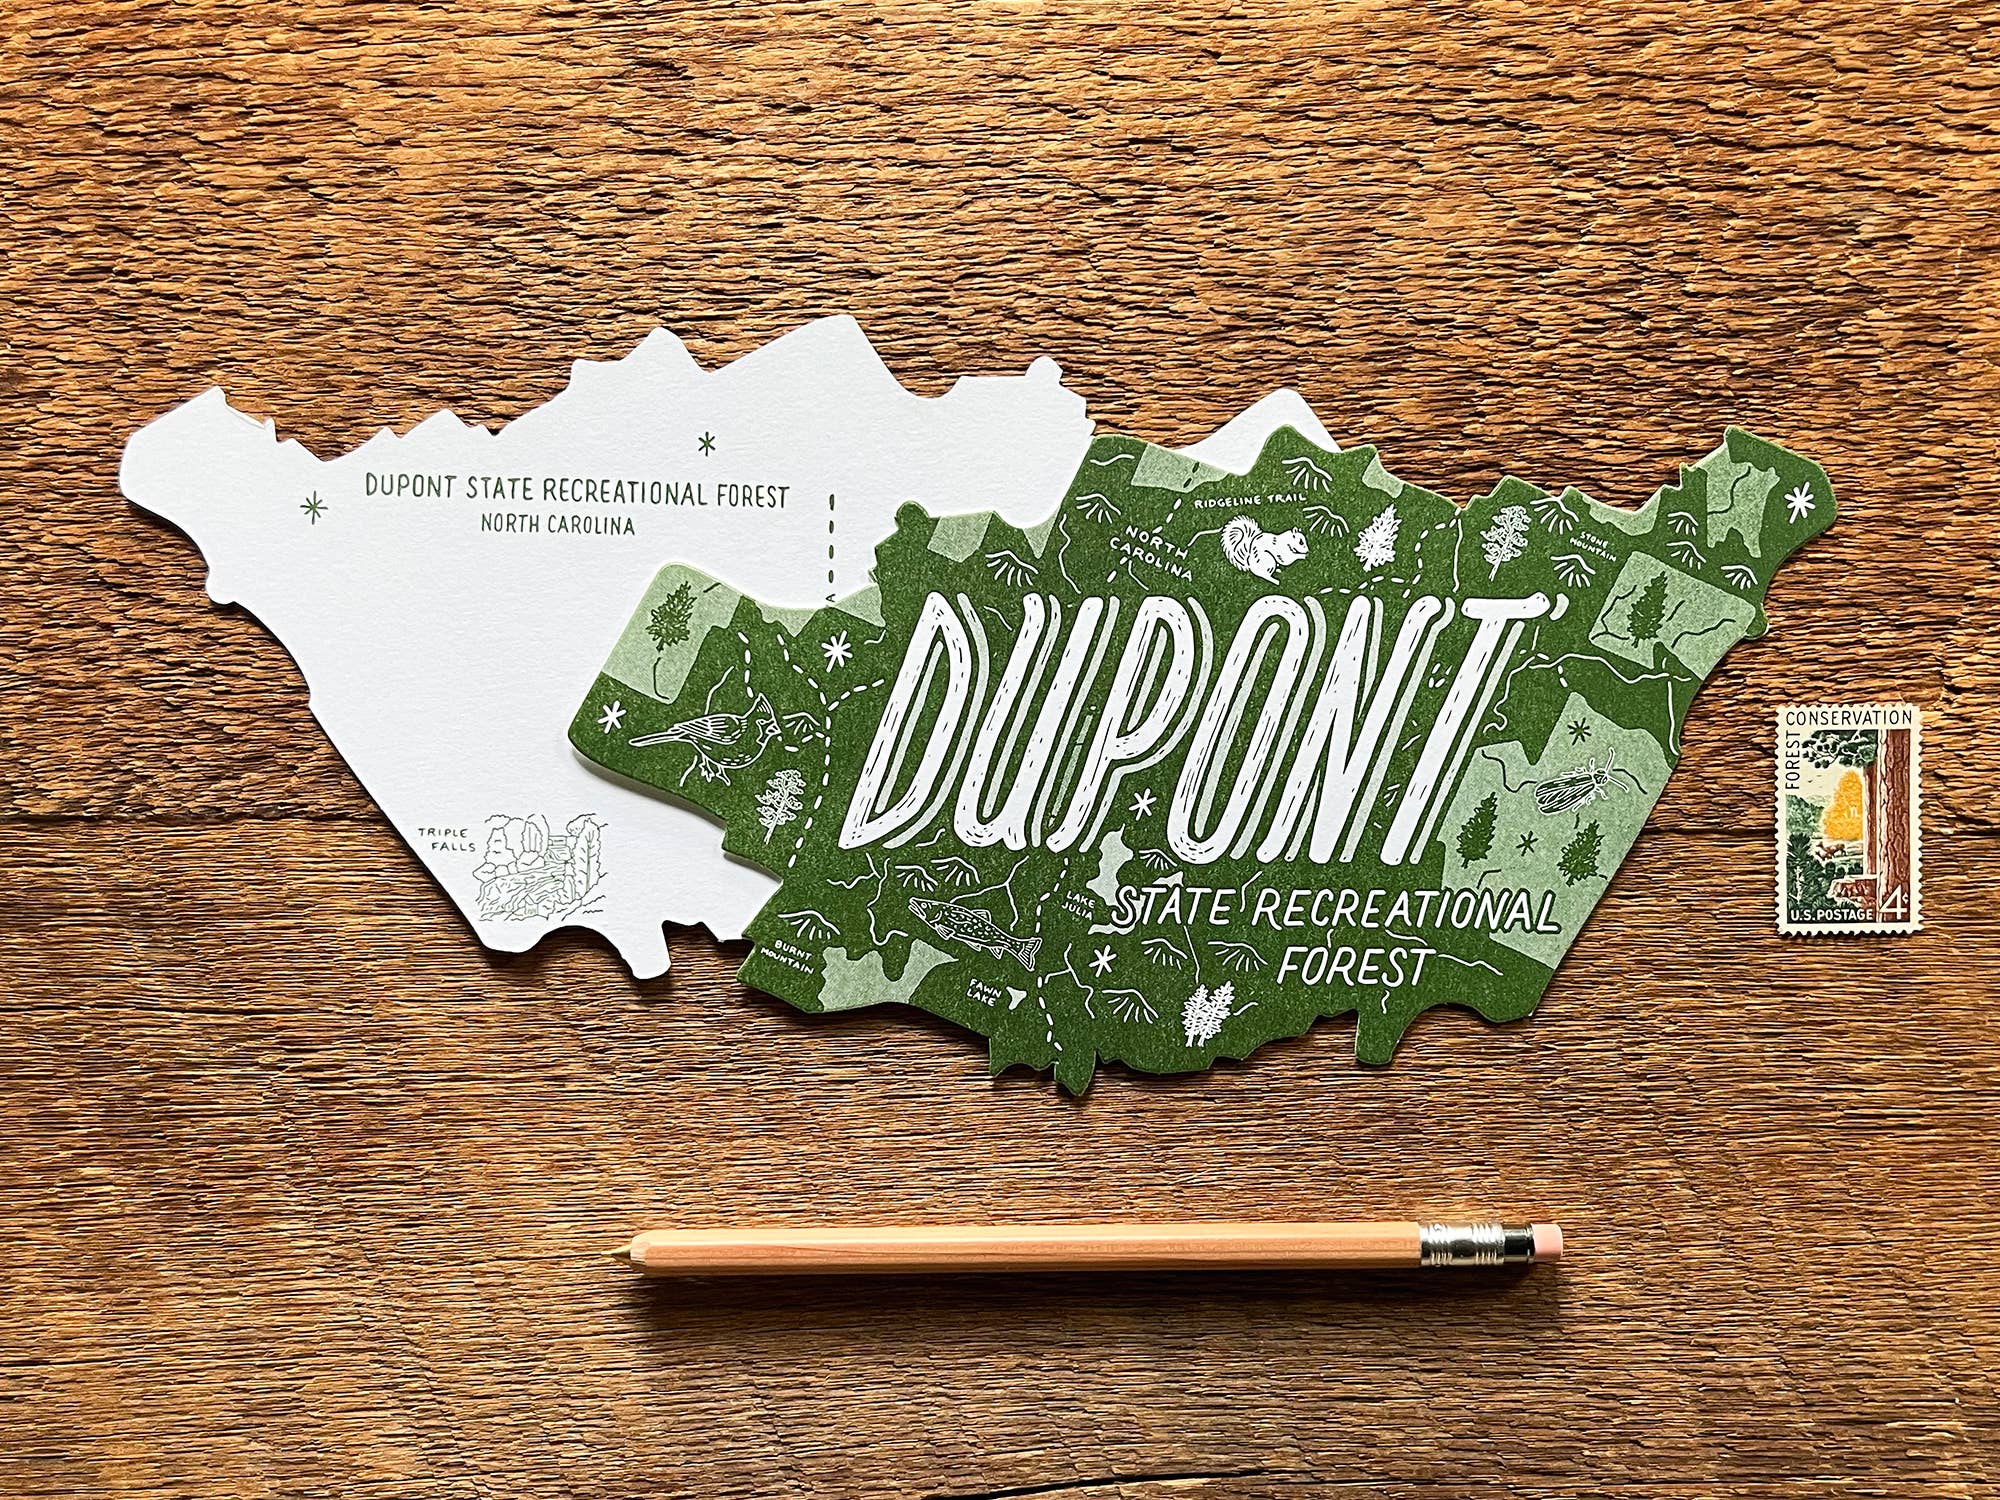 DUPONT STATE RECREATIONAL FOREST
NORTH CAROLINA
TRIPLE
FALLS
RIDGELINE TRAIL
NORTH
CAROLINA
STONE
MOUNTAIN
DUPONT
STATE RECREATIONAL
FOREST
LAKE
JULIA
BURNT
MOUNTAIN
FAWN
LAKE
FOREST
CONSERVATION
U.S. POSTAGE 4¢